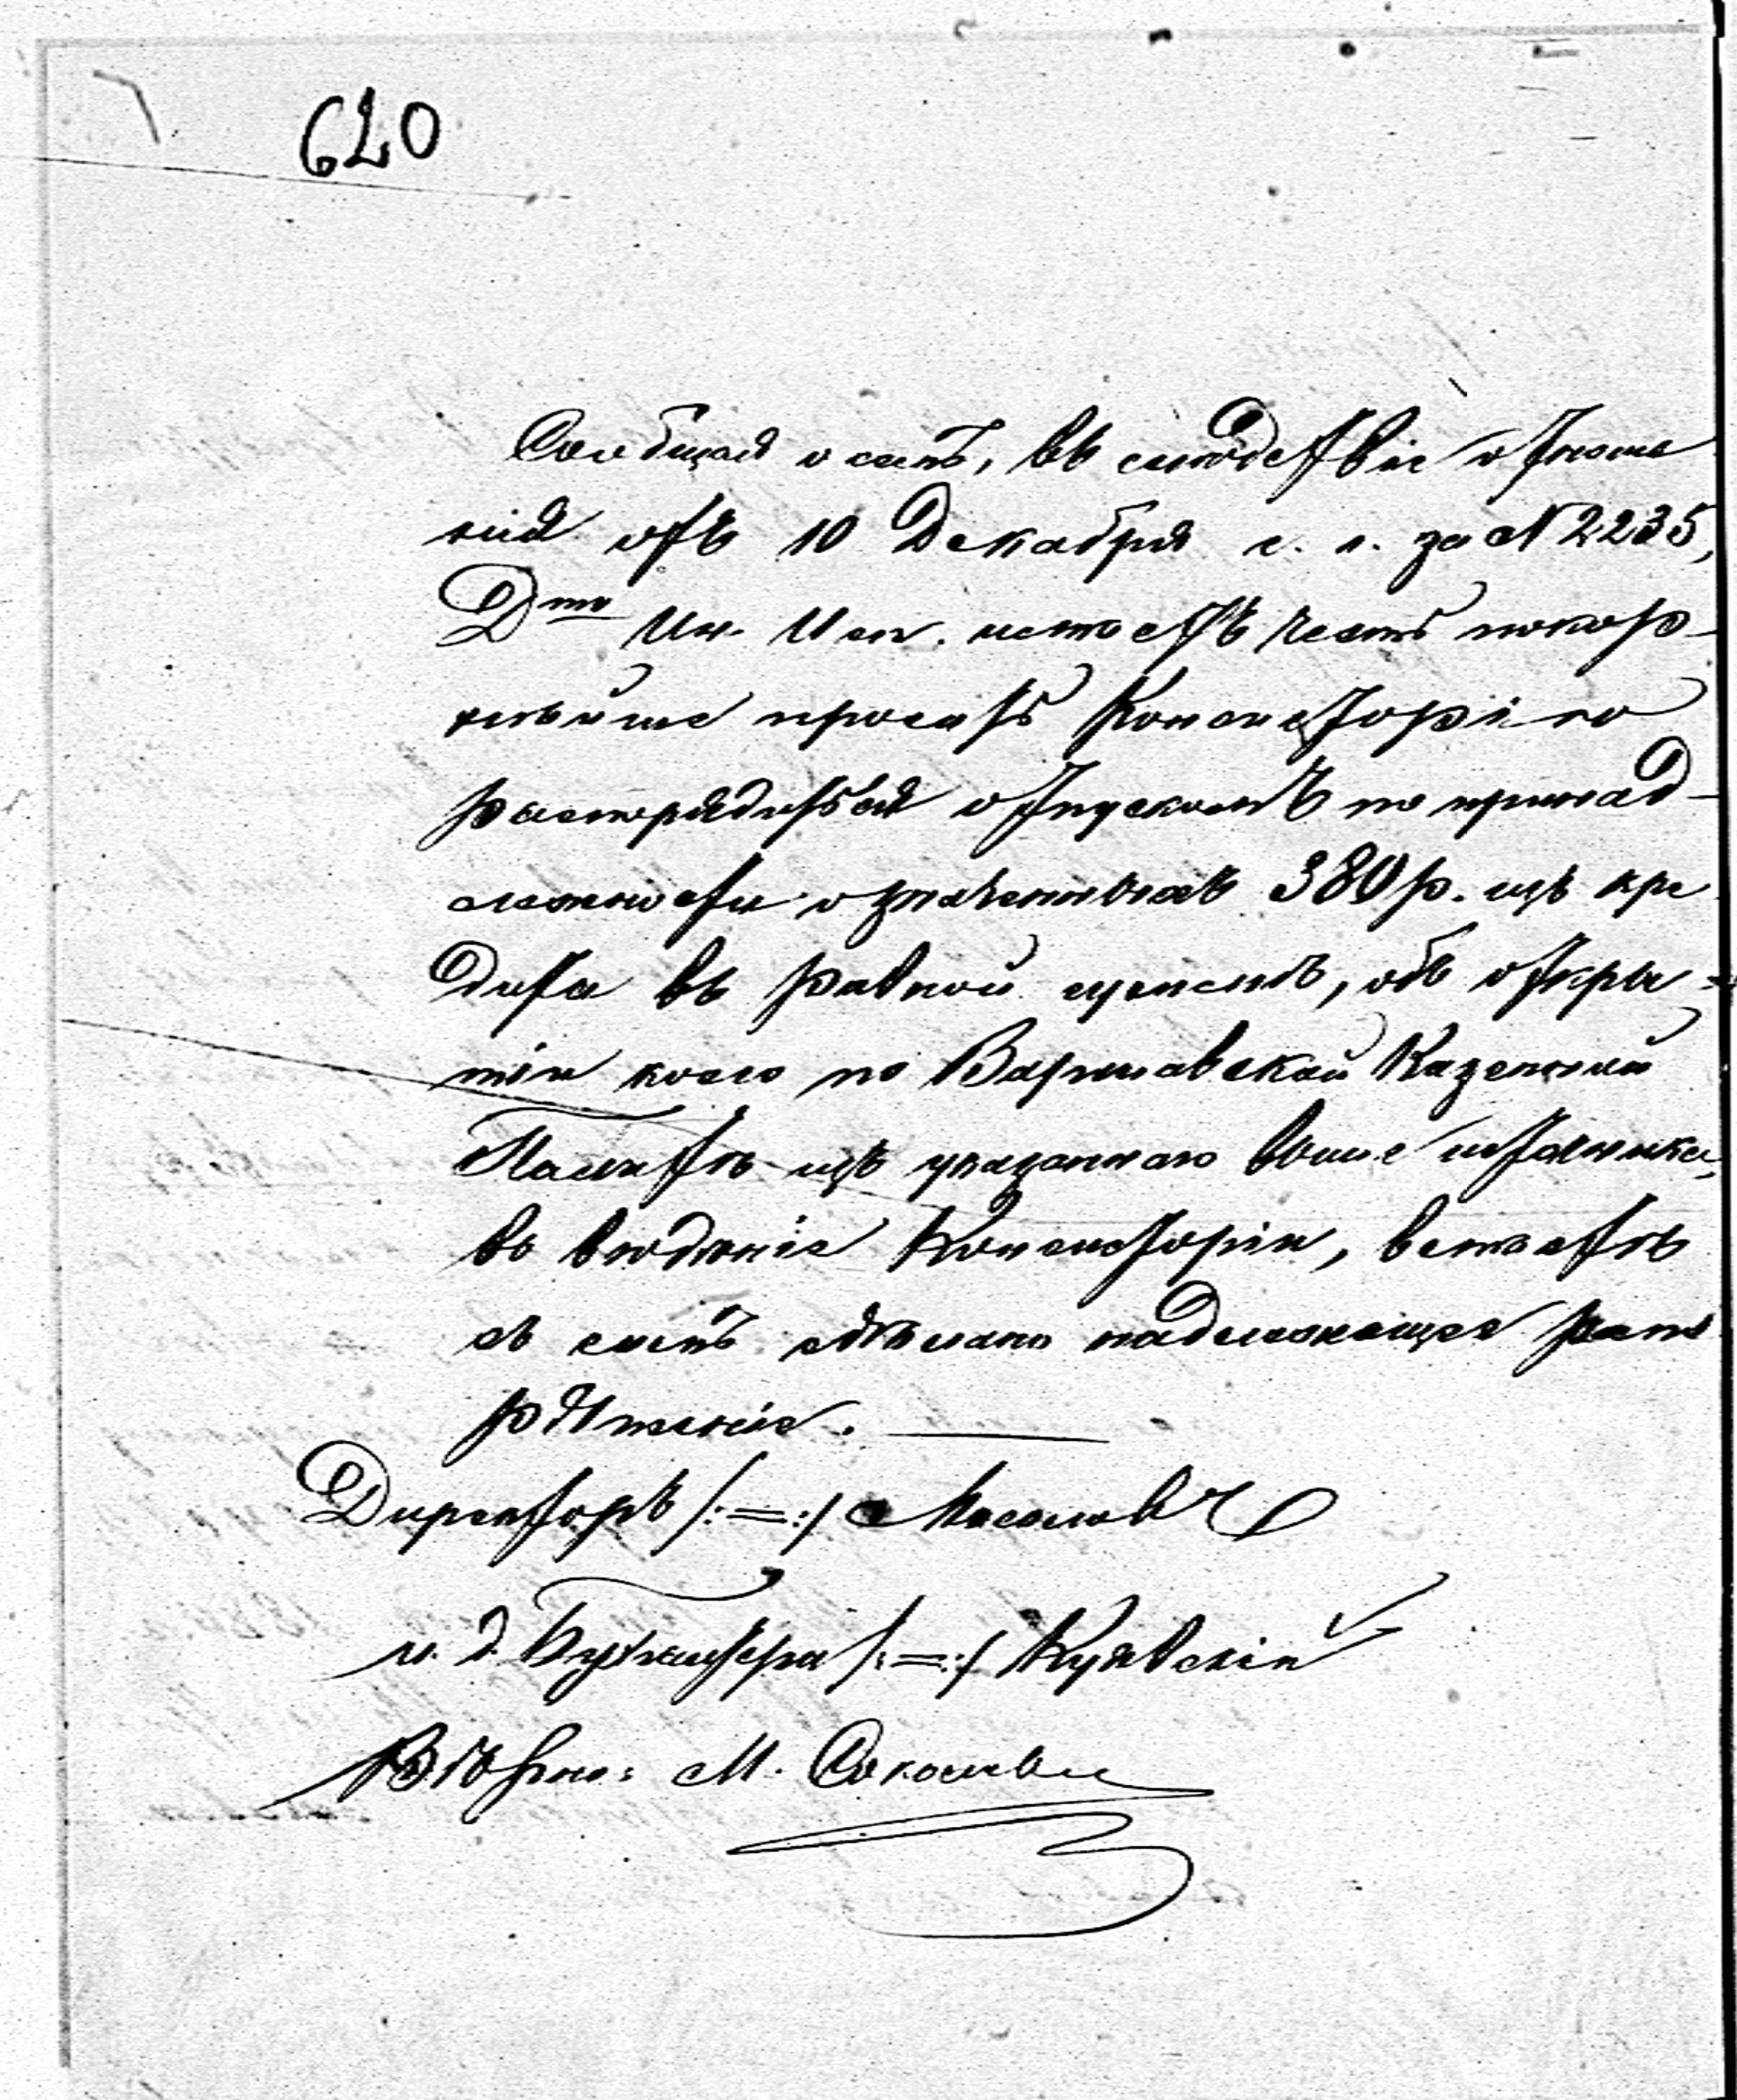 620
Сообщая о семъ, въ слѣдствіе отноше
нія отъ 10 Декабря с. г. за № 2235,
Дтъ Ин. Исп. имѣетъ честь покор-
нѣйше просить Консисторію
распорядиться отпускомъ по принад-
лежности означенныхъ 380 р. изъ кре
дита въ равной суммѣ, объ откры-
тіи коего по Варшавской Казенной
Палатѣ изъ указаннаго выше источника,
въ вѣдѣніе Консисторіи, вмѣстѣ
съ симъ сдѣлано надлежащее распо
ряженіе.
Директоръ /:=:/ Мосоловъ
и. д. Бухгалтера /:=:/ Куявскій
Вѣрно: М. Соколовъ